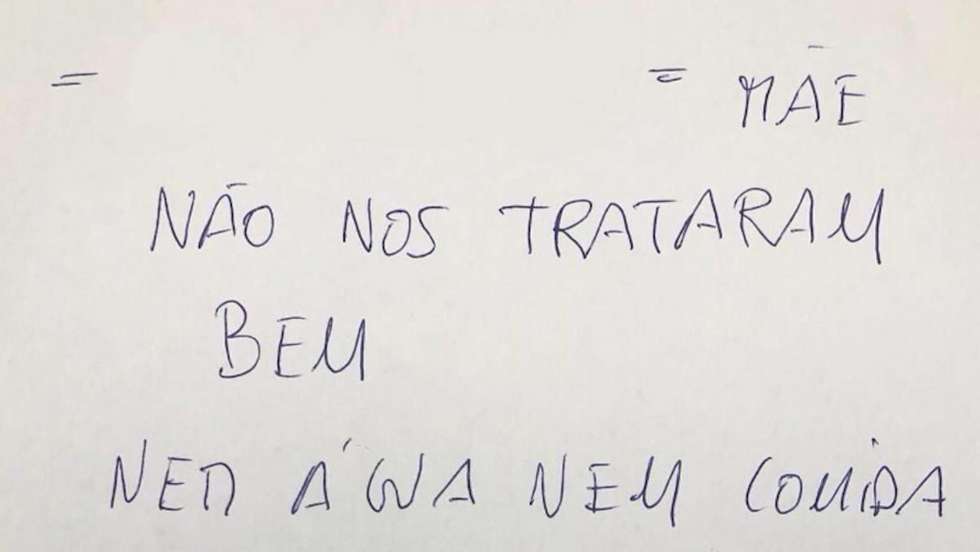 = = MÃE
NÃO NOS TRATARAM
BEM
NEM ÁGUA NEM COMIDA